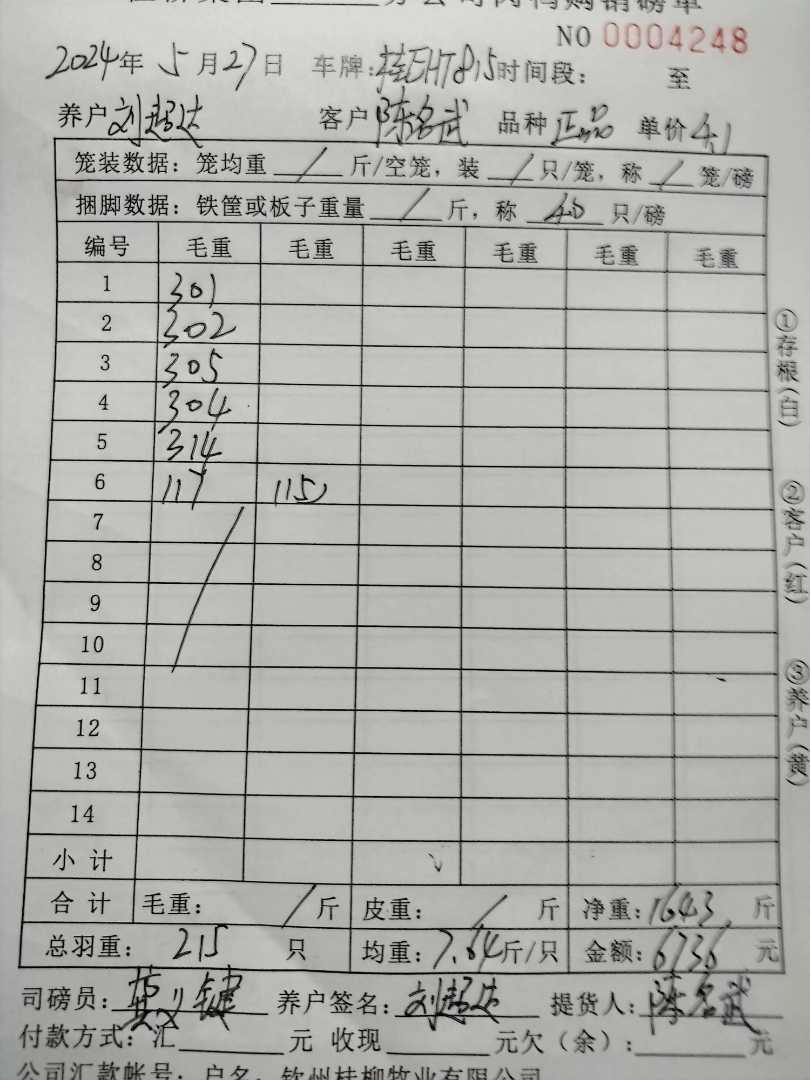 NO 0004248
2024年 5月27日 车牌:桂EHT815 时间段: 至
养户 刘超达 客户 陈名武 品种 正品 单价 4.1
笼装数据: 笼均重 / 斤/空笼, 装 / 只/笼, 称 / 笼/磅
捆脚数据: 铁筐或板子重量 / 斤, 称 40 只/磅
编号 毛重 毛重 毛重 毛重 毛重 毛重
1 301
2 302
3 305
4 304
5 314
6 117 115)
7
8
9
10
11
12
13
14
小计
合计 毛重: / 斤 皮重: / 斤 净重:1643 斤
总羽重: 215 只 均重:7.64斤/只 金额:6736元
司磅员: 莫义键 养户签名: 刘超达 提货人: 陈名武
付款方式:汇 元 收现 元欠(余): 元
公司汇款帐号: 户名: 钦州桂柳牧业有限公司
①存根(白)
②客户(红)
③养户(黄)